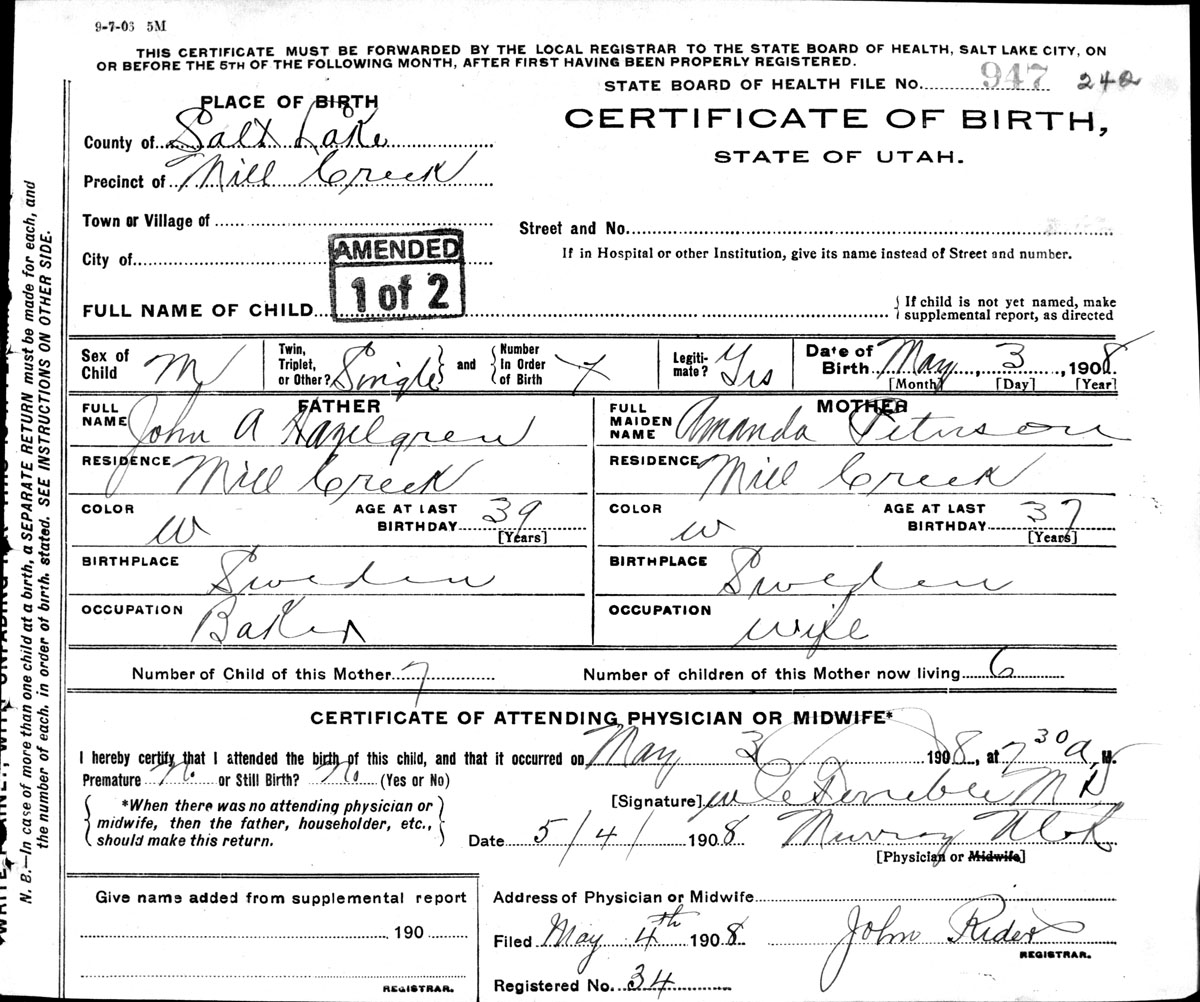 9-7-03 5M
THIS CERTIFICATE MUST BE FORWARDED BY THE LOCAL REGISTRAR TO THE STATE BOARD OF HEALTH, SALT LAKE CITY, ON
OR BEFORE THE 5TH OF THE FOLLOWING MONTH, AFTER FIRST HAVING BEEN PROPERLY REGISTERED.
STATE BOARD OF HEALTH FILE NO. 947 242
PLACE OF BIRTH
CERTIFICATE OF BIRTH,
STATE OF UTAH.
County of Salt Lake
Precinct of Mill Creek
Town or Village of
Street and No.
City of
If in Hospital or other Institution, give its name instead of Street and number.
AMENDED
1 of 2
FULL NAME OF CHILD
If child is not yet named, make
supplemental report, as directed
Sex of Child M
Twin, Triplet, or Other? Single and Number In Order of Birth 7
Legiti-mate? Yes
Date of Birth May 3, 1908
[Month] [Day] [Year]
FATHER
FULL NAME John A Hazelgren
RESIDENCE Mill Creek
COLOR W AGE AT LAST BIRTHDAY 39
[Years]
BIRTHPLACE Sweden
OCCUPATION Baker
MOTHER
FULL MAIDEN NAME Amanda Peterson
RESIDENCE Mill Creek
COLOR W AGE AT LAST BIRTHDAY 37
[Years]
BIRTHPLACE Sweden
OCCUPATION Wife
Number of Child of this Mother 7 Number of children of this Mother now living 6
CERTIFICATE OF ATTENDING PHYSICIAN OR MIDWIFE*
I hereby certify that I attended the birth of this child, and that it occurred on May 3 1908, at 7 30 a M.
Premature No or Still Birth? No (Yes or No)
*When there was no attending physician or
midwife, then the father, householder, etc.,
should make this return.
[Signature] M D
Date 5/4/ 1908 Murray Utah
[Physician or Midwife]
Give name added from supplemental report
190
REGISTRAR.
Address of Physician or Midwife
Filed May 4th 1908 John Rider
REGISTRAR.
Registered No. 34
N. B.—In case of more than one child at a birth, a SEPARATE RETURN must be made for each, and
the number of each, in order of birth, stated. SEE INSTRUCTIONS ON OTHER SIDE.